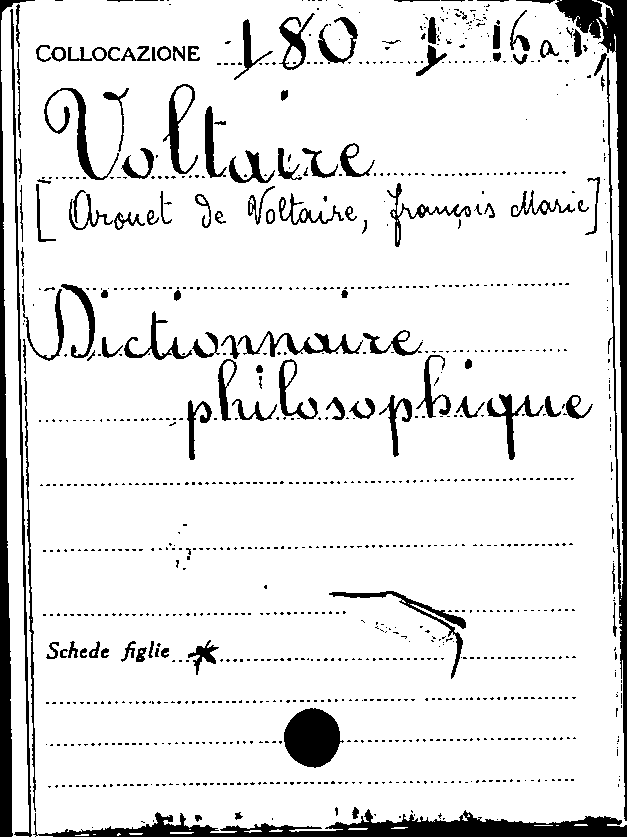 COLLOCAZIONE 180 - 1. 16 a
Voltaire
[Arouet de Voltaire, françois Marie]
Dictionnaire
philosophique
Schede figlie *